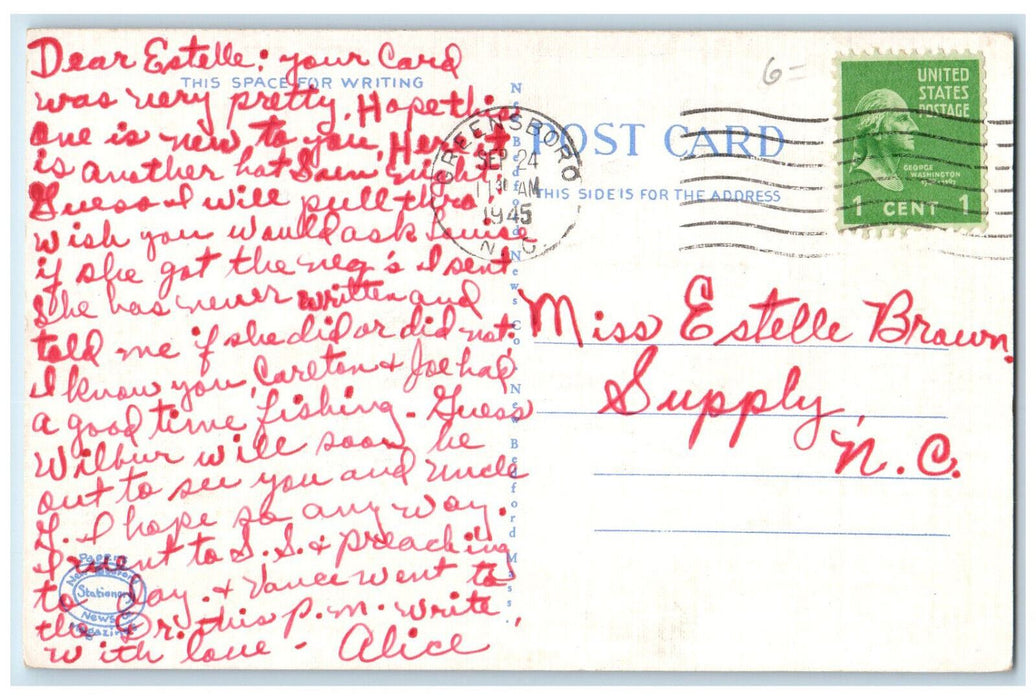 Dear Estelle: your Card
THIS SPACE FOR WRITING
was very pretty. Hope this
one is new to you. Here it
is another hot
Guess I will pull thro'
wish you would ask Louise
if she got the neg's I sent
She has never written and
told me if she did or did not.
I know you, Carlton & Joe had
a good time fishing. Guess
Wilbur will soon be
out to see you and Uncle
G. I hope so any way.
I went to S.S. & preaching
to day. & Vance went to
the Dr. this p.m. write,
with love - Alice
Stationery
News
Magazines
New Bedford News Co. New Bedford Mass.
GREENSBORO
SEP 24
11 30 AM
1945
N. C.
POST CARD
THIS SIDE IS FOR THE ADDRESS
6=
UNITED
STATES
POSTAGE
GEORGE
WASHINGTON
1 CENT 1
Miss Estelle Brown.
Supply,
N.C.